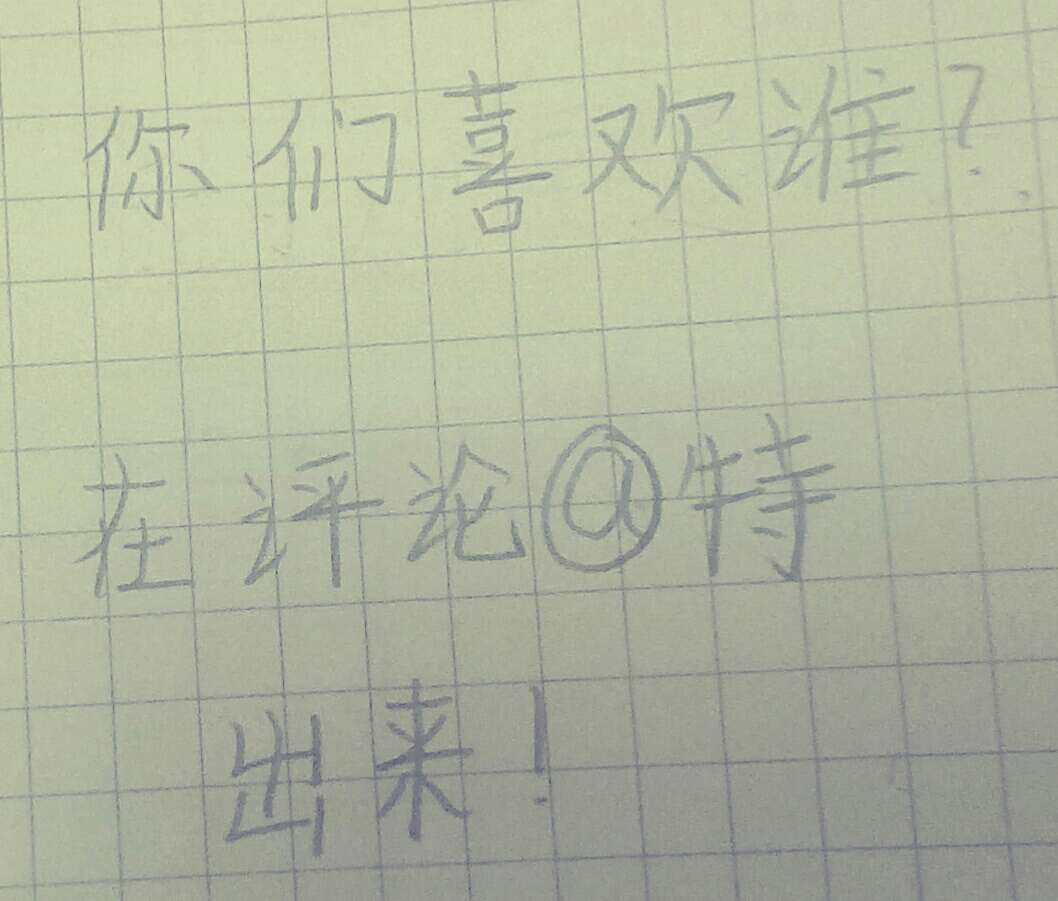 你们喜欢谁?
在评论@特
出来!